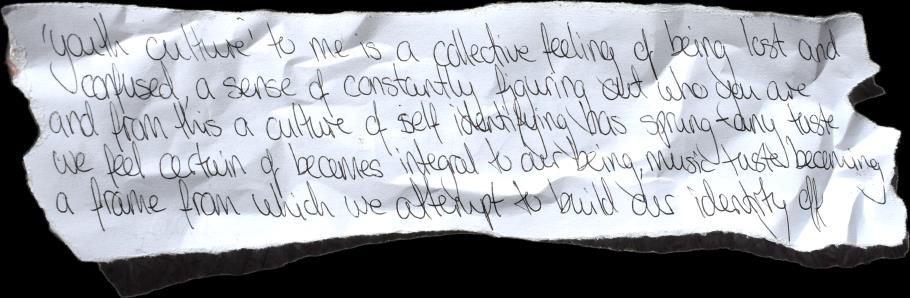 'youth culture' to me is a collective feeling of being lost and
confused, a sense of constantly figuring out who you are
and from this a culture of self identifying has sprung - any taste
we feel certain of becomes integral to our being, music taste becoming
a frame from which we attempt to build our identity off